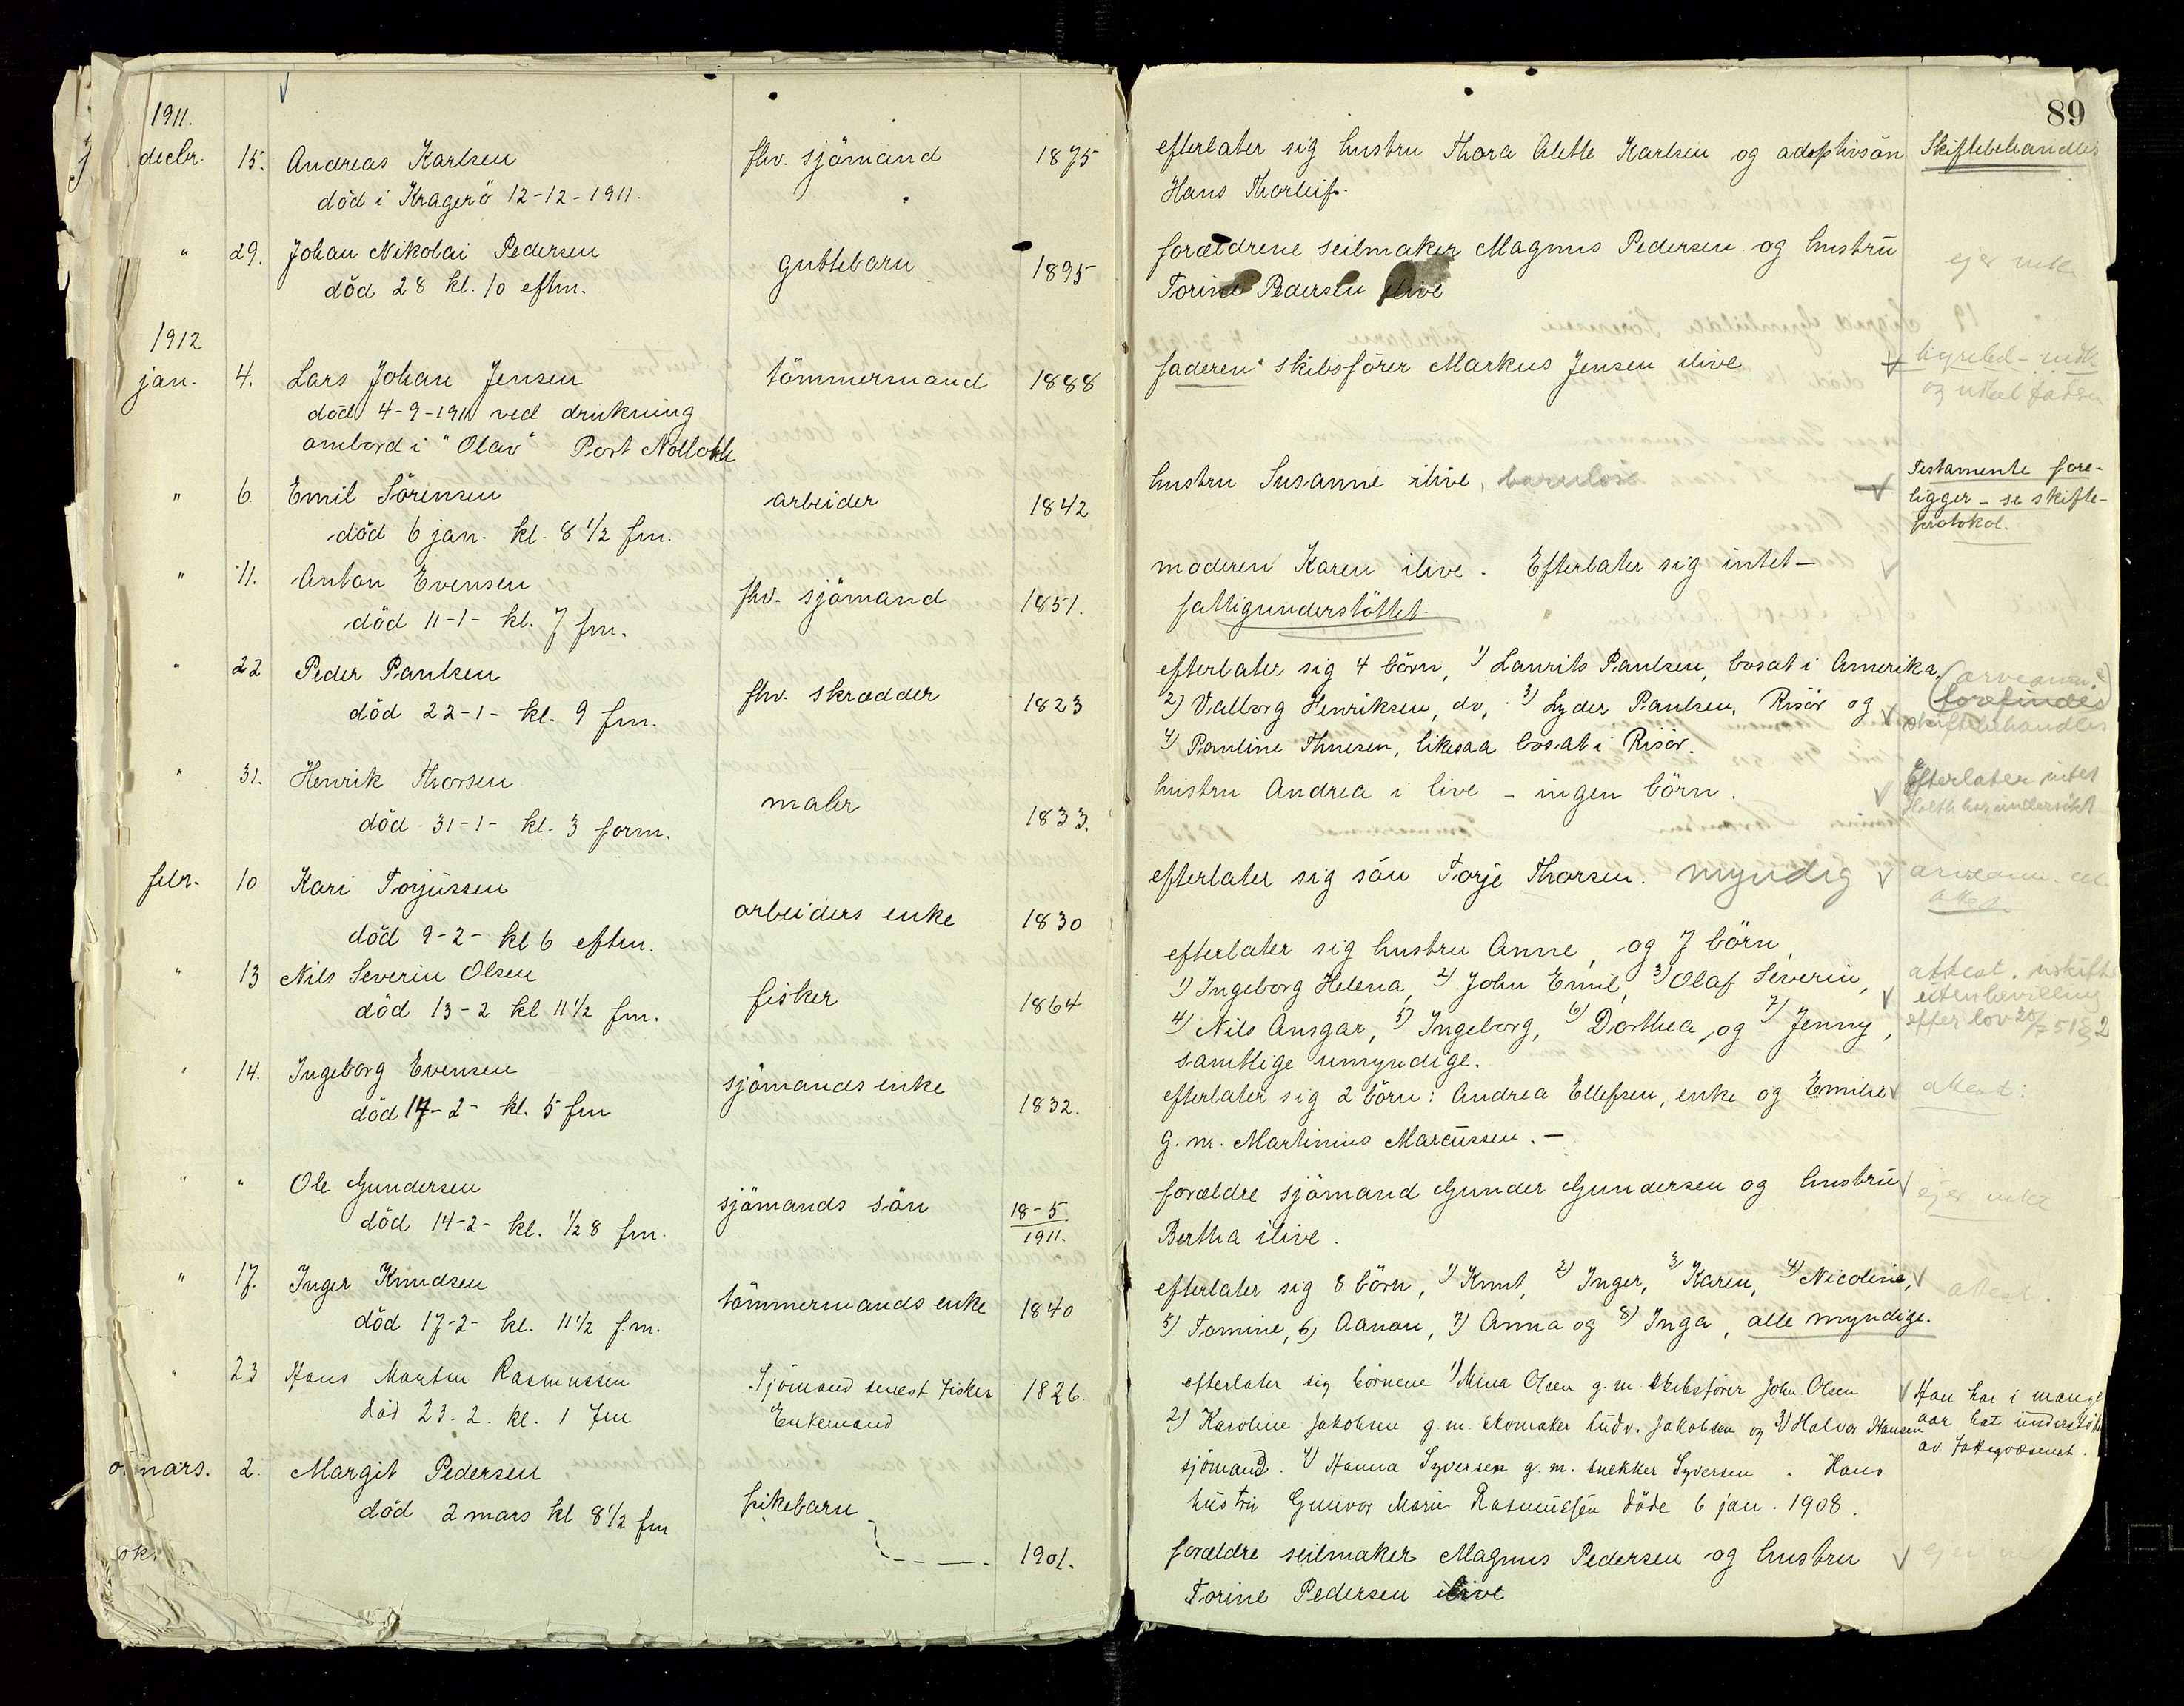 89
1911.
decbr. 15. Andreas Karlsen fhv. sjömand 1875 efterlater sig hustru Thora Alette Karlsen og adoptivsön Skiftebehandles
död i Kragerö 12-12-1911. Hans Thorleif.
" 29. Johan Nikolai Pedersen guttebarn 1895 forældrene seilmaker Magnus Pedersen og hustru ejer intet
död 28 kl. 10 eftm. Torine Pedersen ilive
1912
jan. 4. Lars Johan Jensen tömmermand 1888 faderen skibsförer Markus Jensen ilive
död 4-9-1911 ved drukning og faderen
ombord i "Olav" Port Nolloth
" 6. Emil Sörensen arbeider 1842 hustru Susanne ilive, barnlös Testamente fore-
död 6 jan. kl. 8 1/2 fm. ligger - se skifte-
protokol.
" 11. Anton Evensen fhv. sjömand 1851. moderen Karen ilive. Efterlater sig intet-
död 11-1- kl. 7 fm. fattigunderstöttet.
" 22 Peder Paulsen fhv. skrædder 1823 efterlater sig 4 börn, 1) Laurits Paulsen, bosat i Amerika,
död 22-1- kl. 9 fm. 2) Valborg Henriksen, do, 3) Lyder Paulsen, Risör og forefindes
4) Pauline Thnesen, likesaa bosat i Risör. skiftebehandles
" 31. Henrik Thorsen maler 1833. hustru Andrea i live - ingen börn. Efterlater intet
död 31-1- kl. 3 form.
febr. 10 Kari Torjussen arbeiders enke 1830 efterlater sig sön Torje Thorsen. myndig
död 9-2- kl 6 eftm. attest
" 13 Nils Severin Olsen fisker 1864 efterlater sig hustru Anne, og 7 börn,
död 13-2 kl 11 1/2 fm. 1) Ingeborg Helena, 2) John Emil, 3) Olaf Severin, attest. uskifte
4) Nils Ansgar, 5) Ingeborg, 6) Dorthea, og 7) Jenny, uten bevilling
samtlige umyndige. efter lov
" 14. Ingeborg Evensen sjömands enke 1832. efterlater sig 2 börn: Andrea Ellefsen, enke og Emilie attest:
död 14-2- kl. 5 fm g. m. Martinius Marcussen. -
" " Ole Gundersen sjömands sön 18-5 1911. forældre sjömand Gunder Gundersen og hustru ejer intet
död 14-2- kl. 1/2 8 fm. Bertha ilive.
" 17. Inger Knudsen tömmermands enke 1840 efterlater sig 8 börn, 1) Knut, 2) Inger, 3) Karen, 4) Nicoline, attest.
död 17-2- kl. 11 1/2 f.m. 5) Tomine, 6) Aanon, 7) Anna og 8) Inga, alle myndige.
" 23 Hans Martin Rasmussen Sjömand senest Fisker 1826 efterlater sig börnene 1) Mina Olsen g.m. skibsförer John Olsen Han har i mange
död 23.2. kl. 1 fm Enkemand 2) Karoline Jakobsen g.m. skomaker Ludv. Jakobsen og 3) Halvor Hansen aar hat understöt
sjömand. 4) Hanna Syversen g.m. snekker Syversen. Hans av Fattigvæsenet.
hustru Gunvor Marie Rasmussen döde 6 jan. 1908.
mars. 2. Margit Pedersen pikebarn 1901. forældre seilmaker Magnus Pedersen og hustru
död 2 mars kl 8 1/2 fm Torine Pedersen ilive
ok.